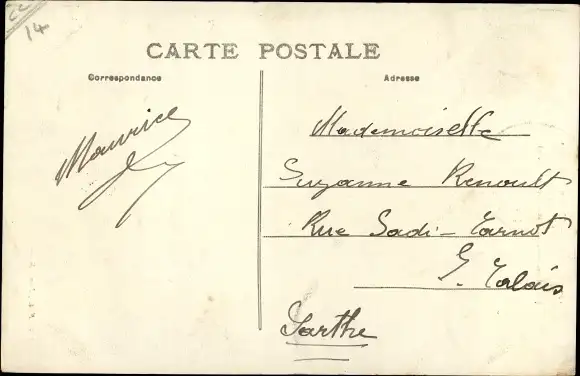 14
CARTE POSTALE
Correspondance
Adresse
Maurice
Mademoiselle
Suzanne Renoult
Rue Sadi-Carnot
St Calais
Sarthe